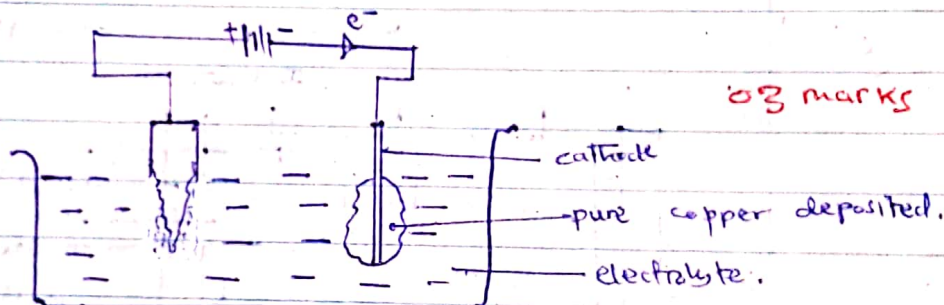 + - e⁻
03 marks
cathode
pure copper deposited.
electrolyte.